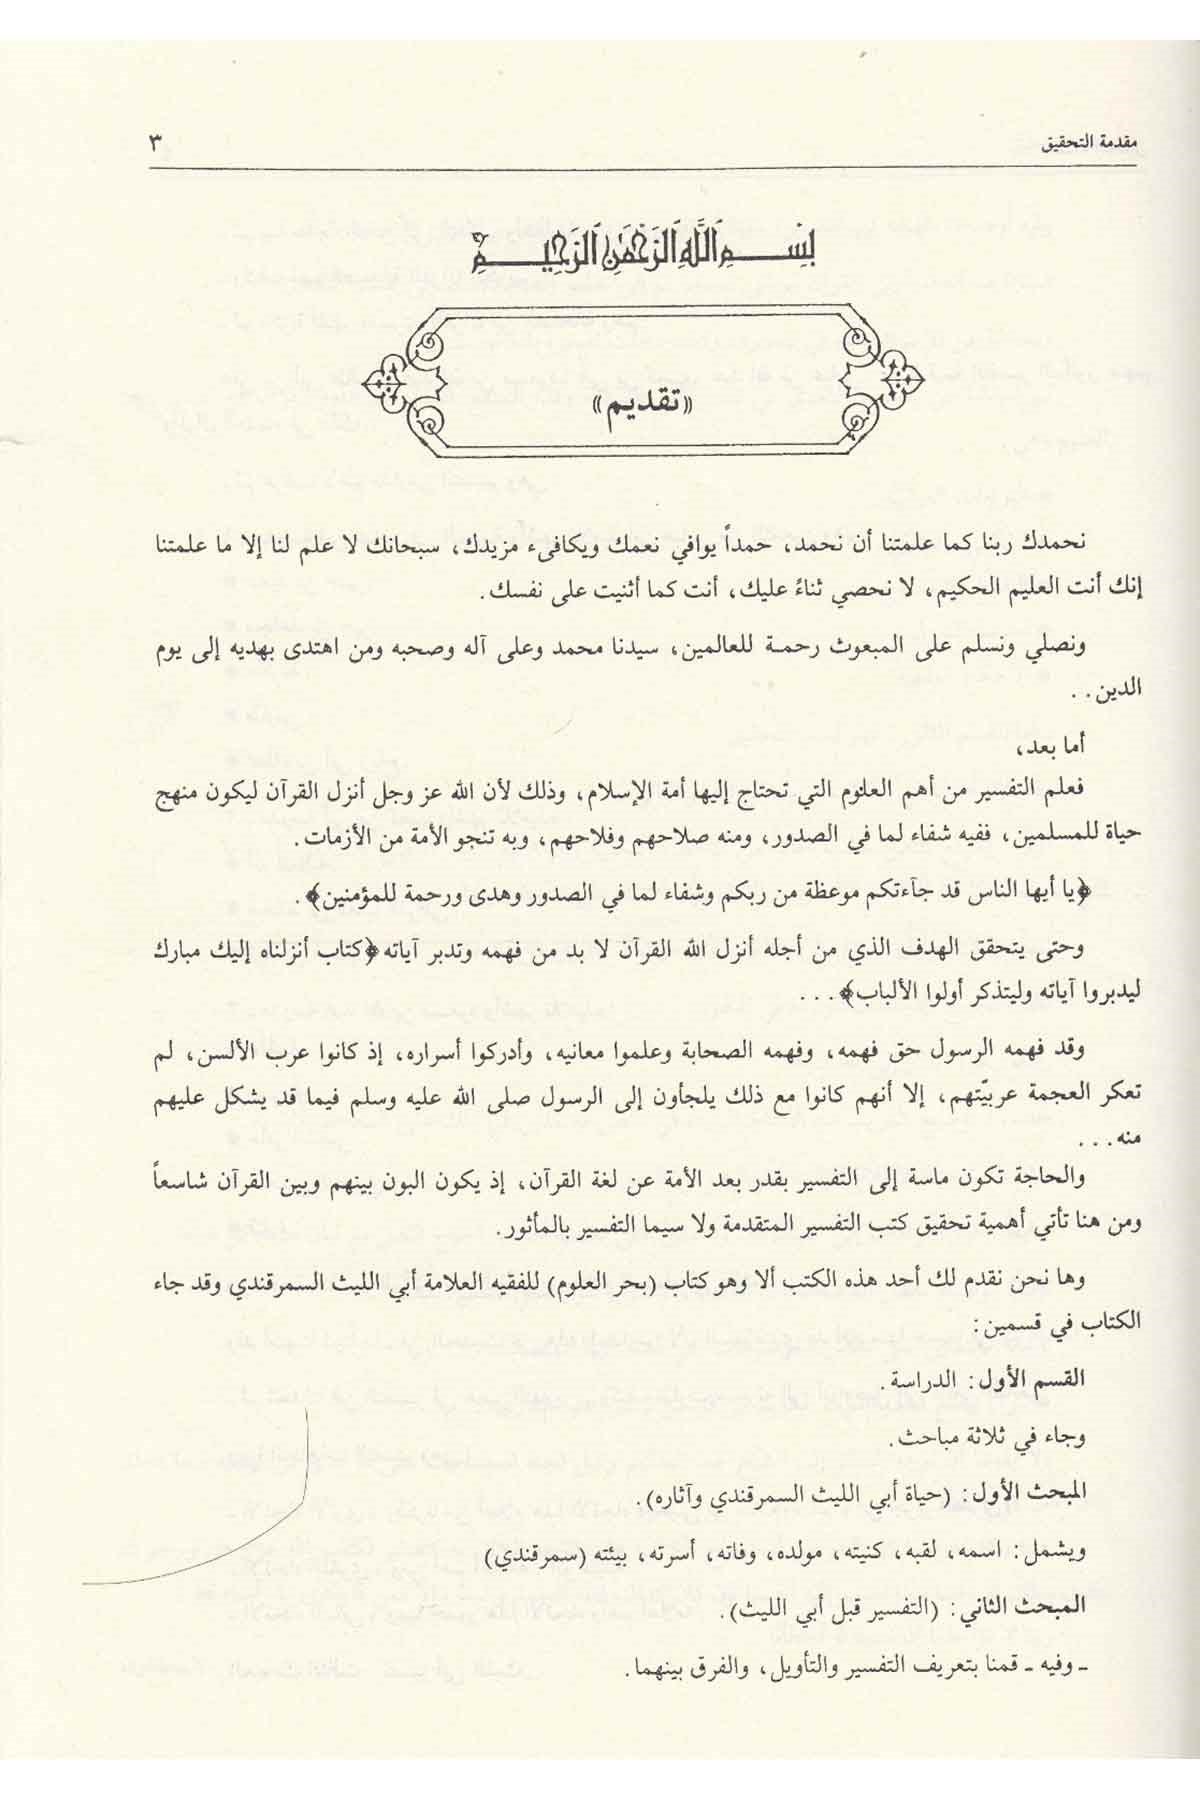 مقدمة التحقيق ٣
بسم الله الرحمن الرحيم
«تقديم»
نحمدك ربنا كما علمتنا أن نحمد، حمداً يوافي نعمك ويكافىء مزيدك، سبحانك لا علم لنا إلا ما علمتنا
إنك أنت العليم الحكيم، لا نحصي ثناءً عليك، أنت كما أثنيت على نفسك.
ونصلي ونسلم على المبعوث رحمة للعالمين، سيدنا محمد وعلى آله وصحبه ومن اهتدى بهديه إلى يوم
الدين..
أما بعد،
فعلم التفسير من أهم العلوم التي تحتاج إليها أمة الإسلام، وذلك لأن الله عز وجل أنزل القرآن ليكون منهج
حياة للمسلمين، ففيه شفاء لما في الصدور، ومنه صلاحهم وفلاحهم، وبه تنجو الأمة من الأزمات.
﴿يا أيها الناس قد جآءتكم موعظة من ربكم وشفاء لما في الصدور وهدى ورحمة للمؤمنين﴾.
وحتى يتحقق الهدف الذي من أجله أنزل الله القرآن لا بد من فهمه وتدبر آياته ﴿كتاب أنزلناه إليك مبارك
ليدبروا آياته وليتذكر أولوا الألباب﴾...
وقد فهمه الرسول حق فهمه، وفهمه الصحابة وعلموا معانيه، وأدركوا أسراره، إذ كانوا عرب الألسن، لم
تعكر العجمة عربيّتهم، إلا أنهم كانوا مع ذلك يلجأون إلى الرسول صلى الله عليه وسلم فيما قد يشكل عليهم
منه...
والحاجة تكون ماسة إلى التفسير بقدر بعد الأمة عن لغة القرآن، إذ يكون البون بينهم وبين القرآن شاسعاً
ومن هنا تأتي أهمية تحقيق كتب التفسير المتقدمة ولا سيما التفسير بالمأثور.
وها نحن نقدم لك أحد هذه الكتب ألا وهو كتاب (بحر العلوم) للفقيه العلامة أبي الليث السمرقندي وقد جاء
الكتاب في قسمين:
القسم الأول: الدراسة.
وجاء في ثلاثة مباحث.
المبحث الأول: (حياة أبي الليث السمرقندي وآثاره).
ويشمل: اسمه، لقبه، كنيته، مولده، وفاته، أسرته، بيئته (سمرقندي)
المبحث الثاني: (التفسير قبل أبي الليث).
ـ وفيه ـ قمنا بتعريف التفسير والتأويل، والفرق بينهما.